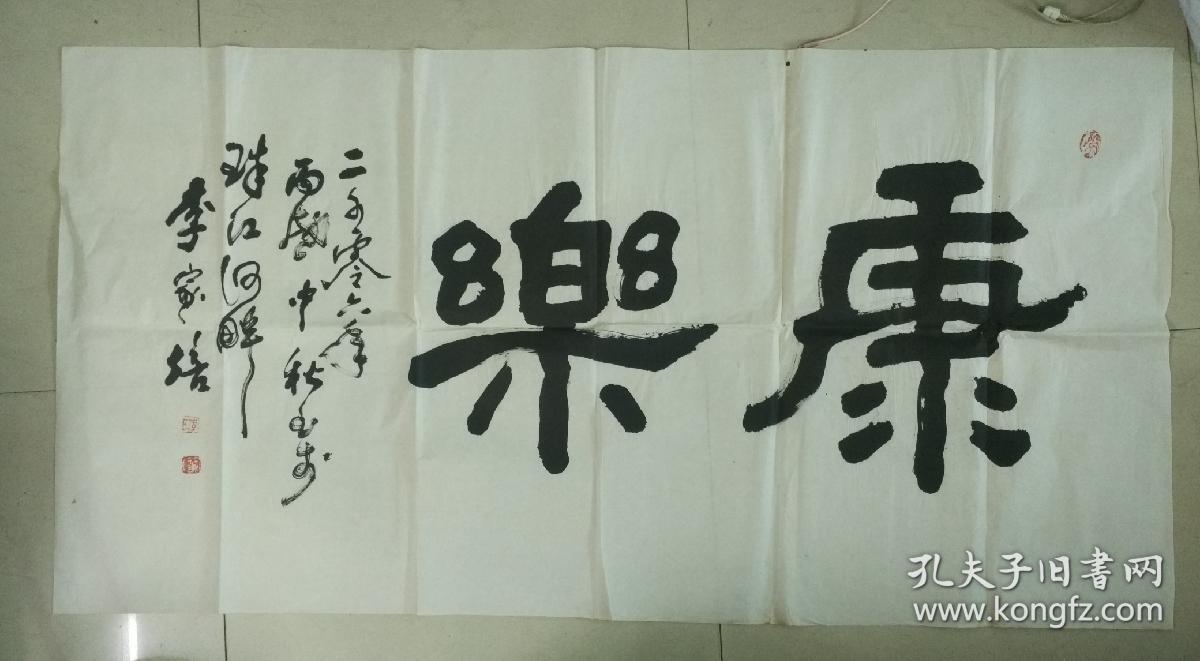 康樂
二千零六年
丙戌中秋书于
珠江河畔
李家培
孔夫子旧書网
www.kongfz.com